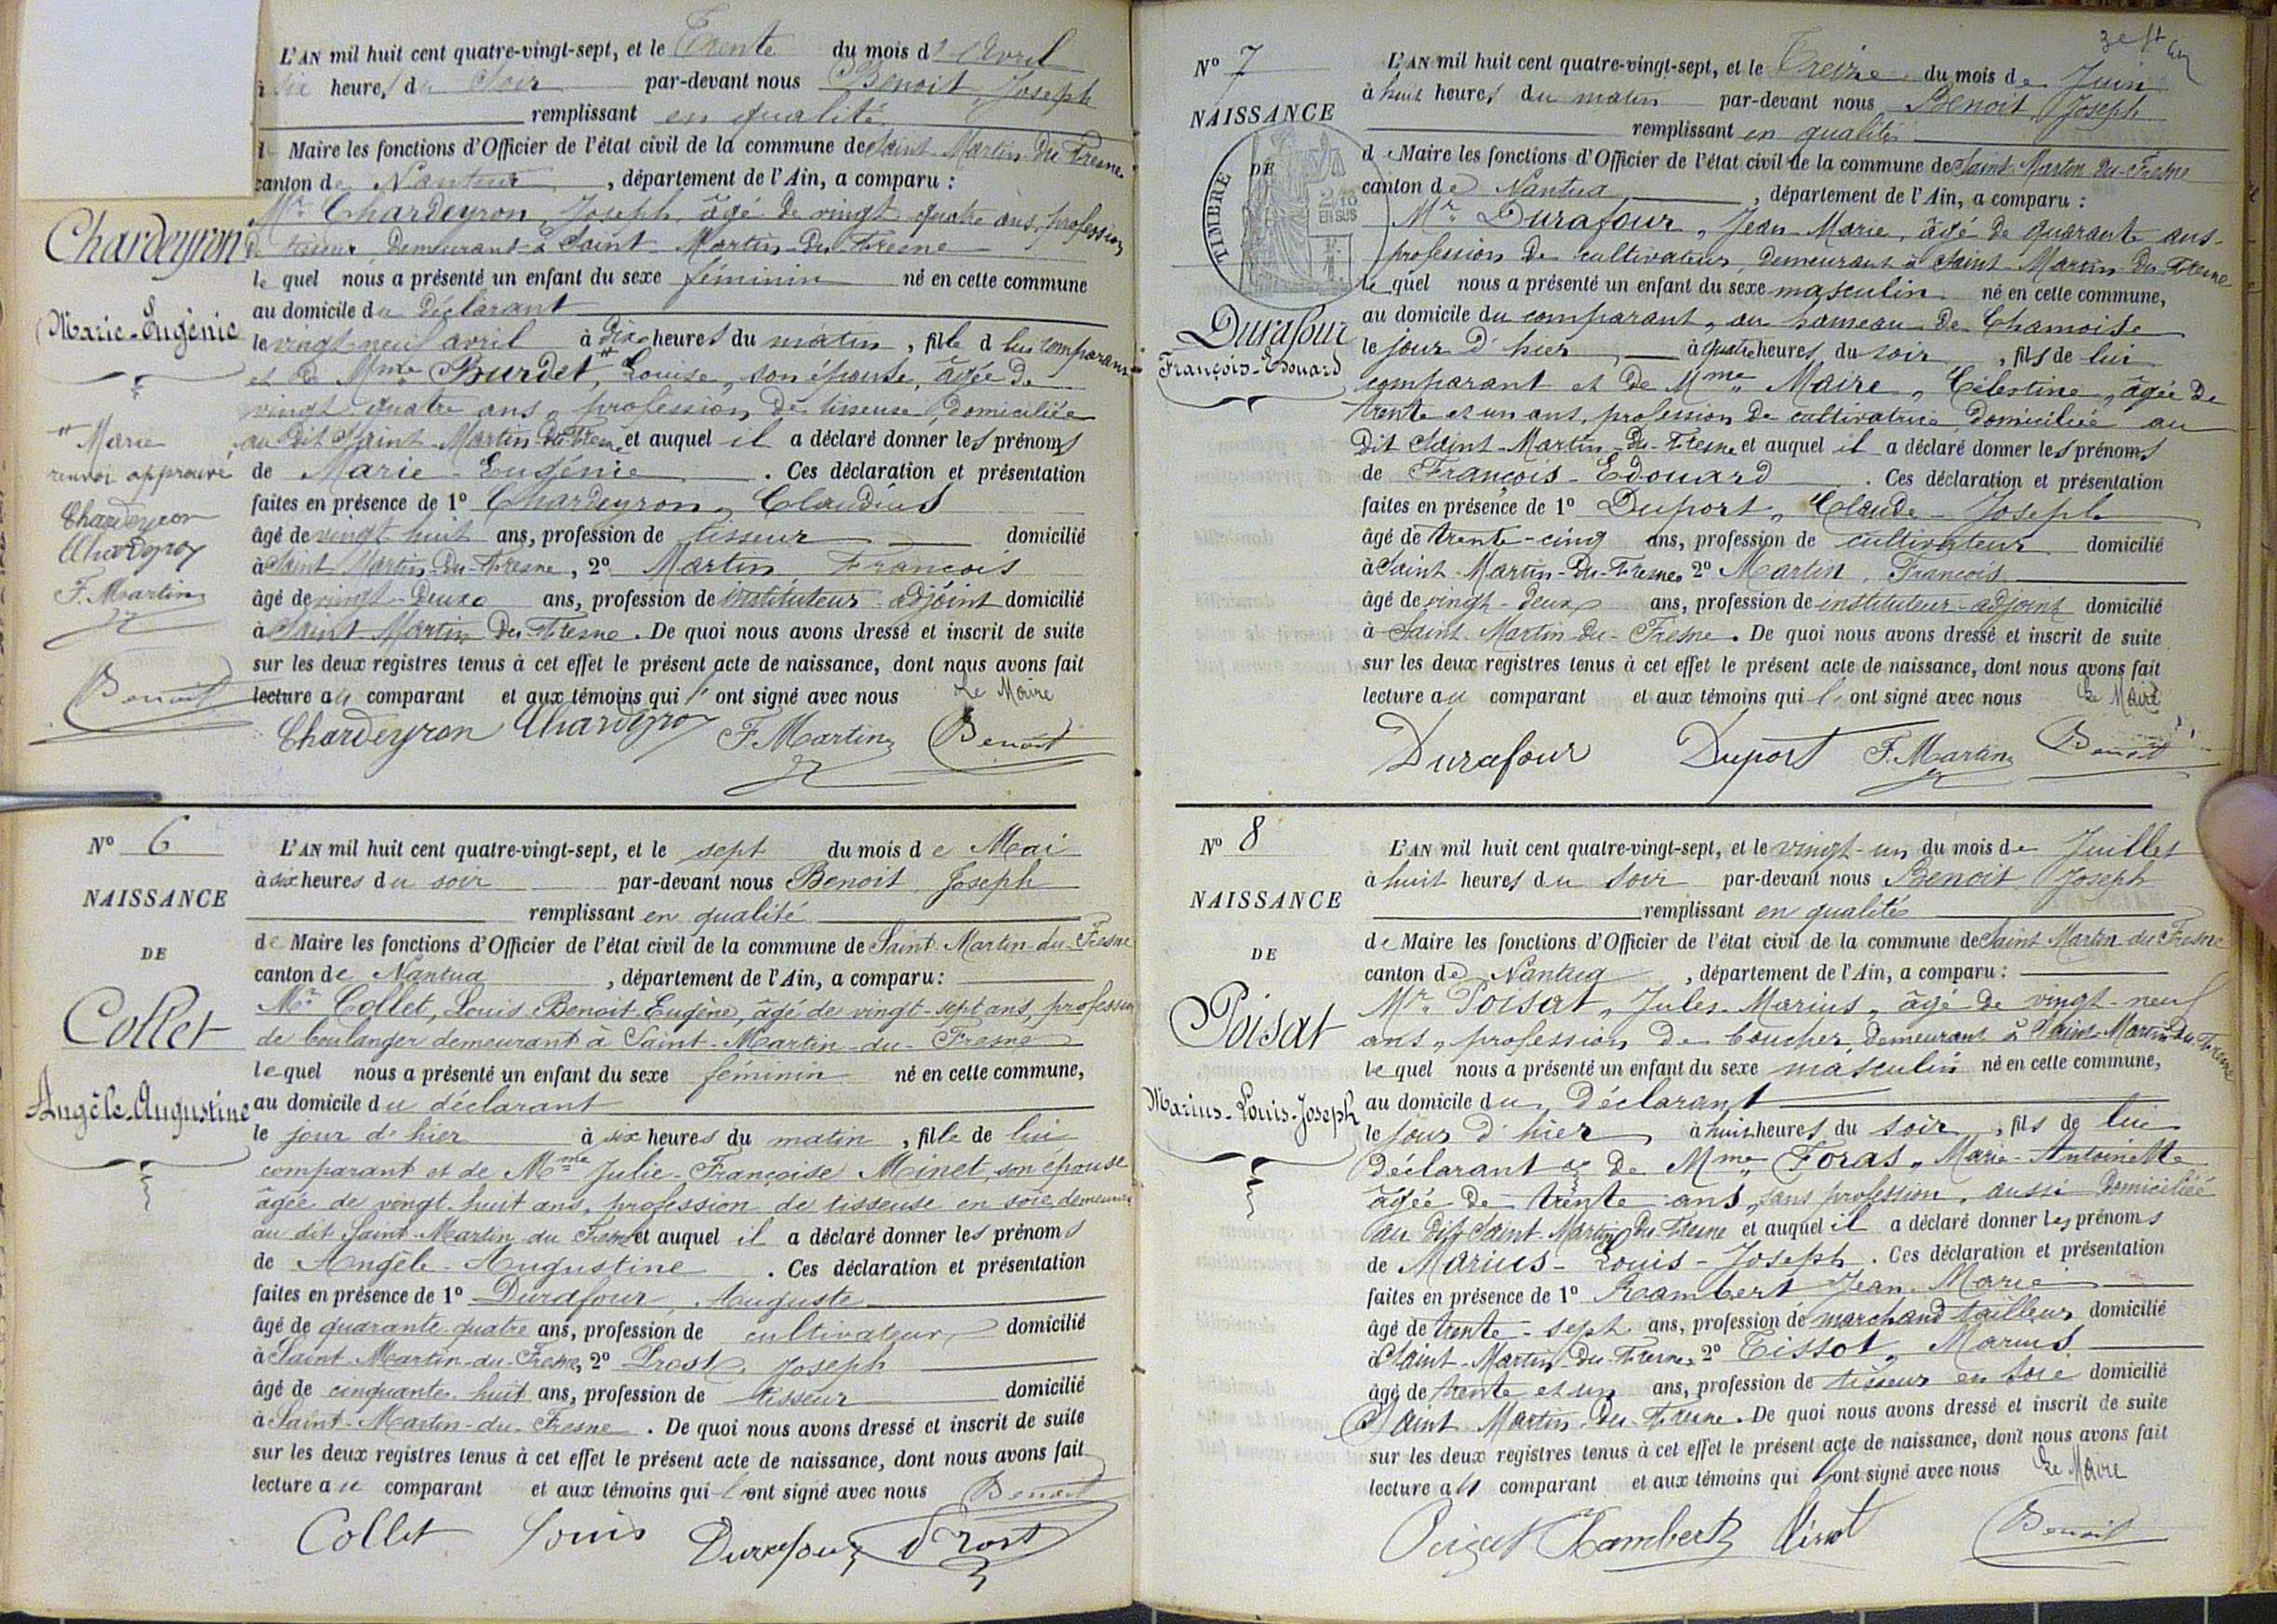 L'AN mil huit cent quatre-vingt-sept, et le Trente du mois d'Avril
à six heures du Soir par-devant nous Benoit, Joseph
remplissant en qualité
de Maire les fonctions d'Officier de l'état civil de la commune de Saint-Martin-du-Fresne
canton de Nantua, département de l'Ain, a comparu :
Chardeyron
Mr Chardeyron, Joseph, âgé de vingt-quatre ans, profession
de tisseur, demeurant à Saint-Martin-du-Fresne
le quel nous a présenté un enfant du sexe féminin né en cette commune
au domicile du déclarant
Marie-Eugénie
le vingt neuf avril à dix heures du matin, fille de lui comparant
et de Mme Burdet, # Louise, son épouse, âgée de
vingt-quatre ans, profession de tisseuse, domiciliée
# Marie
renvoi approuvé
Chardeyron
Chardeyron
F. Martin
Benoit
au dit Saint-Martin-du-Fresne et auquel il a déclaré donner les prénoms
de Marie-Eugénie. Ces déclaration et présentation
faites en présence de 1º Chardeyron, Claudius
âgé de vingt huit ans, profession de tisseur domicilié
à Saint-Martin-du-Fresne, 2º Martin François
âgé de vingt-deux ans, profession de instituteur-adjoint domicilié
à Saint Martin du Fresne. De quoi nous avons dressé et inscrit de suite
sur les deux registres tenus à cet effet le présent acte de naissance, dont nous avons fait
lecture au comparant et aux témoins qui l'ont signé avec nous Le Maire
Chardeyron Chardeyron F. Martin Benoit
Nº 6
NAISSANCE
DE
Collet
Angèle-Augustine
L'AN mil huit cent quatre-vingt-sept, et le sept du mois de Mai
à six heures du soir par-devant nous Benoit, Joseph
remplissant en qualité
de Maire les fonctions d'Officier de l'état civil de la commune de Saint-Martin-du-Fresne
canton de Nantua, département de l'Ain, a comparu :
Mr Collet, Louis-Benoit-Eugène, âgé de vingt-sept ans, profession
de boulanger demeurant à Saint-Martin-du-Fresne
lequel nous a présenté un enfant du sexe féminin né en cette commune,
au domicile du déclarant
le jour d'hier à six heures du matin, fille de lui
comparant et de Mme Julie-Françoise Minet, son épouse
âgée de vingt-huit ans, profession de tisseuse en soie, demeurant
au dit Saint-Martin du Fresne et auquel il a déclaré donner les prénoms
de Angèle-Augustine. Ces déclaration et présentation
faites en présence de 1º Durafour, Auguste
âgé de quarante-quatre ans, profession de cultivateur domicilié
à Saint-Martin-du-Fresne, 2º Prost, Joseph
âgé de cinquante-huit ans, profession de tisseur domicilié
à Saint-Martin-du-Fresne. De quoi nous avons dressé et inscrit de suite
sur les deux registres tenus à cet effet le présent acte de naissance, dont nous avons fait
lecture au comparant et aux témoins qui l'ont signé avec nous Benoit
Collet Louis Durafour Prost
Nº 7
NAISSANCE
DE
TIMBRE
2/10
EN SUS
Durafour
François-Edouard
L'AN mil huit cent quatre-vingt-sept, et le Treize du mois de Juin
à huit heures du matin par-devant nous Benoit, Joseph
remplissant en qualité
de Maire les fonctions d'Officier de l'état civil de la commune de Saint-Martin-du-Fresne
canton de Nantua, département de l'Ain, a comparu :
Mr Durafour, Jean-Marie, âgé de quarante ans
profession de cultivateur, demeurant à Saint-Martin-du-Fresne
le quel nous a présenté un enfant du sexe masculin né en cette commune,
au domicile du comparant, au hameau de Chamoise
le jour d'hier, à quatre heures du soir, fils de lui
comparant et de Mme Maire, Célestine, âgée de
trente et un ans, profession de cultivatrice, domiciliée au
dit Saint-Martin-du-Fresne et auquel il a déclaré donner les prénoms
de François-Edouard. Ces déclaration et présentation
faites en présence de 1º Duport, Claude-Joseph
âgé de trente-cinq ans, profession de cultivateur domicilié
à Saint-Martin-du-Fresne, 2º Martin, François
âgé de vingt-deux ans, profession de instituteur-adjoint domicilié
à Saint-Martin-du-Fresne. De quoi nous avons dressé et inscrit de suite
sur les deux registres tenus à cet effet le présent acte de naissance, dont nous avons fait
lecture au comparant et aux témoins qui l'ont signé avec nous Le Maire
Durafour Duport F. Martin Benoit
Nº 8
NAISSANCE
DE
Poisat
Marius-Louis-Joseph
L'AN mil huit cent quatre-vingt-sept, et le vingt-un du mois de Juillet
à huit heures du soir par-devant nous Benoit, Joseph
remplissant en qualité
de Maire les fonctions d'Officier de l'état civil de la commune de Saint Martin du Fresne
canton de Nantua, département de l'Ain, a comparu :
Mr Poisat, Jules-Marius, âgé de vingt-neuf
ans, profession de boucher, demeurant à Saint-Martin du Fresne
le quel nous a présenté un enfant du sexe masculin né en cette commune,
au domicile du Déclarant
le jour d'hier, à huit heures du soir, fils de lui
déclarant & de Mme Foras, Marie-Antoinette
âgée de trente ans, sans profession, aussi domiciliée
au dit Saint-Martin-du-Fresne et auquel il a déclaré donner les prénoms
de Marius-Louis-Joseph. Ces déclaration et présentation
faites en présence de 1º Rambert Jean-Marie
âgé de trente-sept ans, profession de marchand tailleur domicilié
à Saint-Martin-du-Fresne, 2º Tissot, Marius
âgé de trente et un ans, profession de tisseur en soie domicilié
à Saint-Martin-du-Fresne. De quoi nous avons dressé et inscrit de suite
sur les deux registres tenus à cet effet le présent acte de naissance, dont nous avons fait
lecture au comparant et aux témoins qui l'ont signé avec nous Le Maire
Poisat Rambert Tissot Benoit